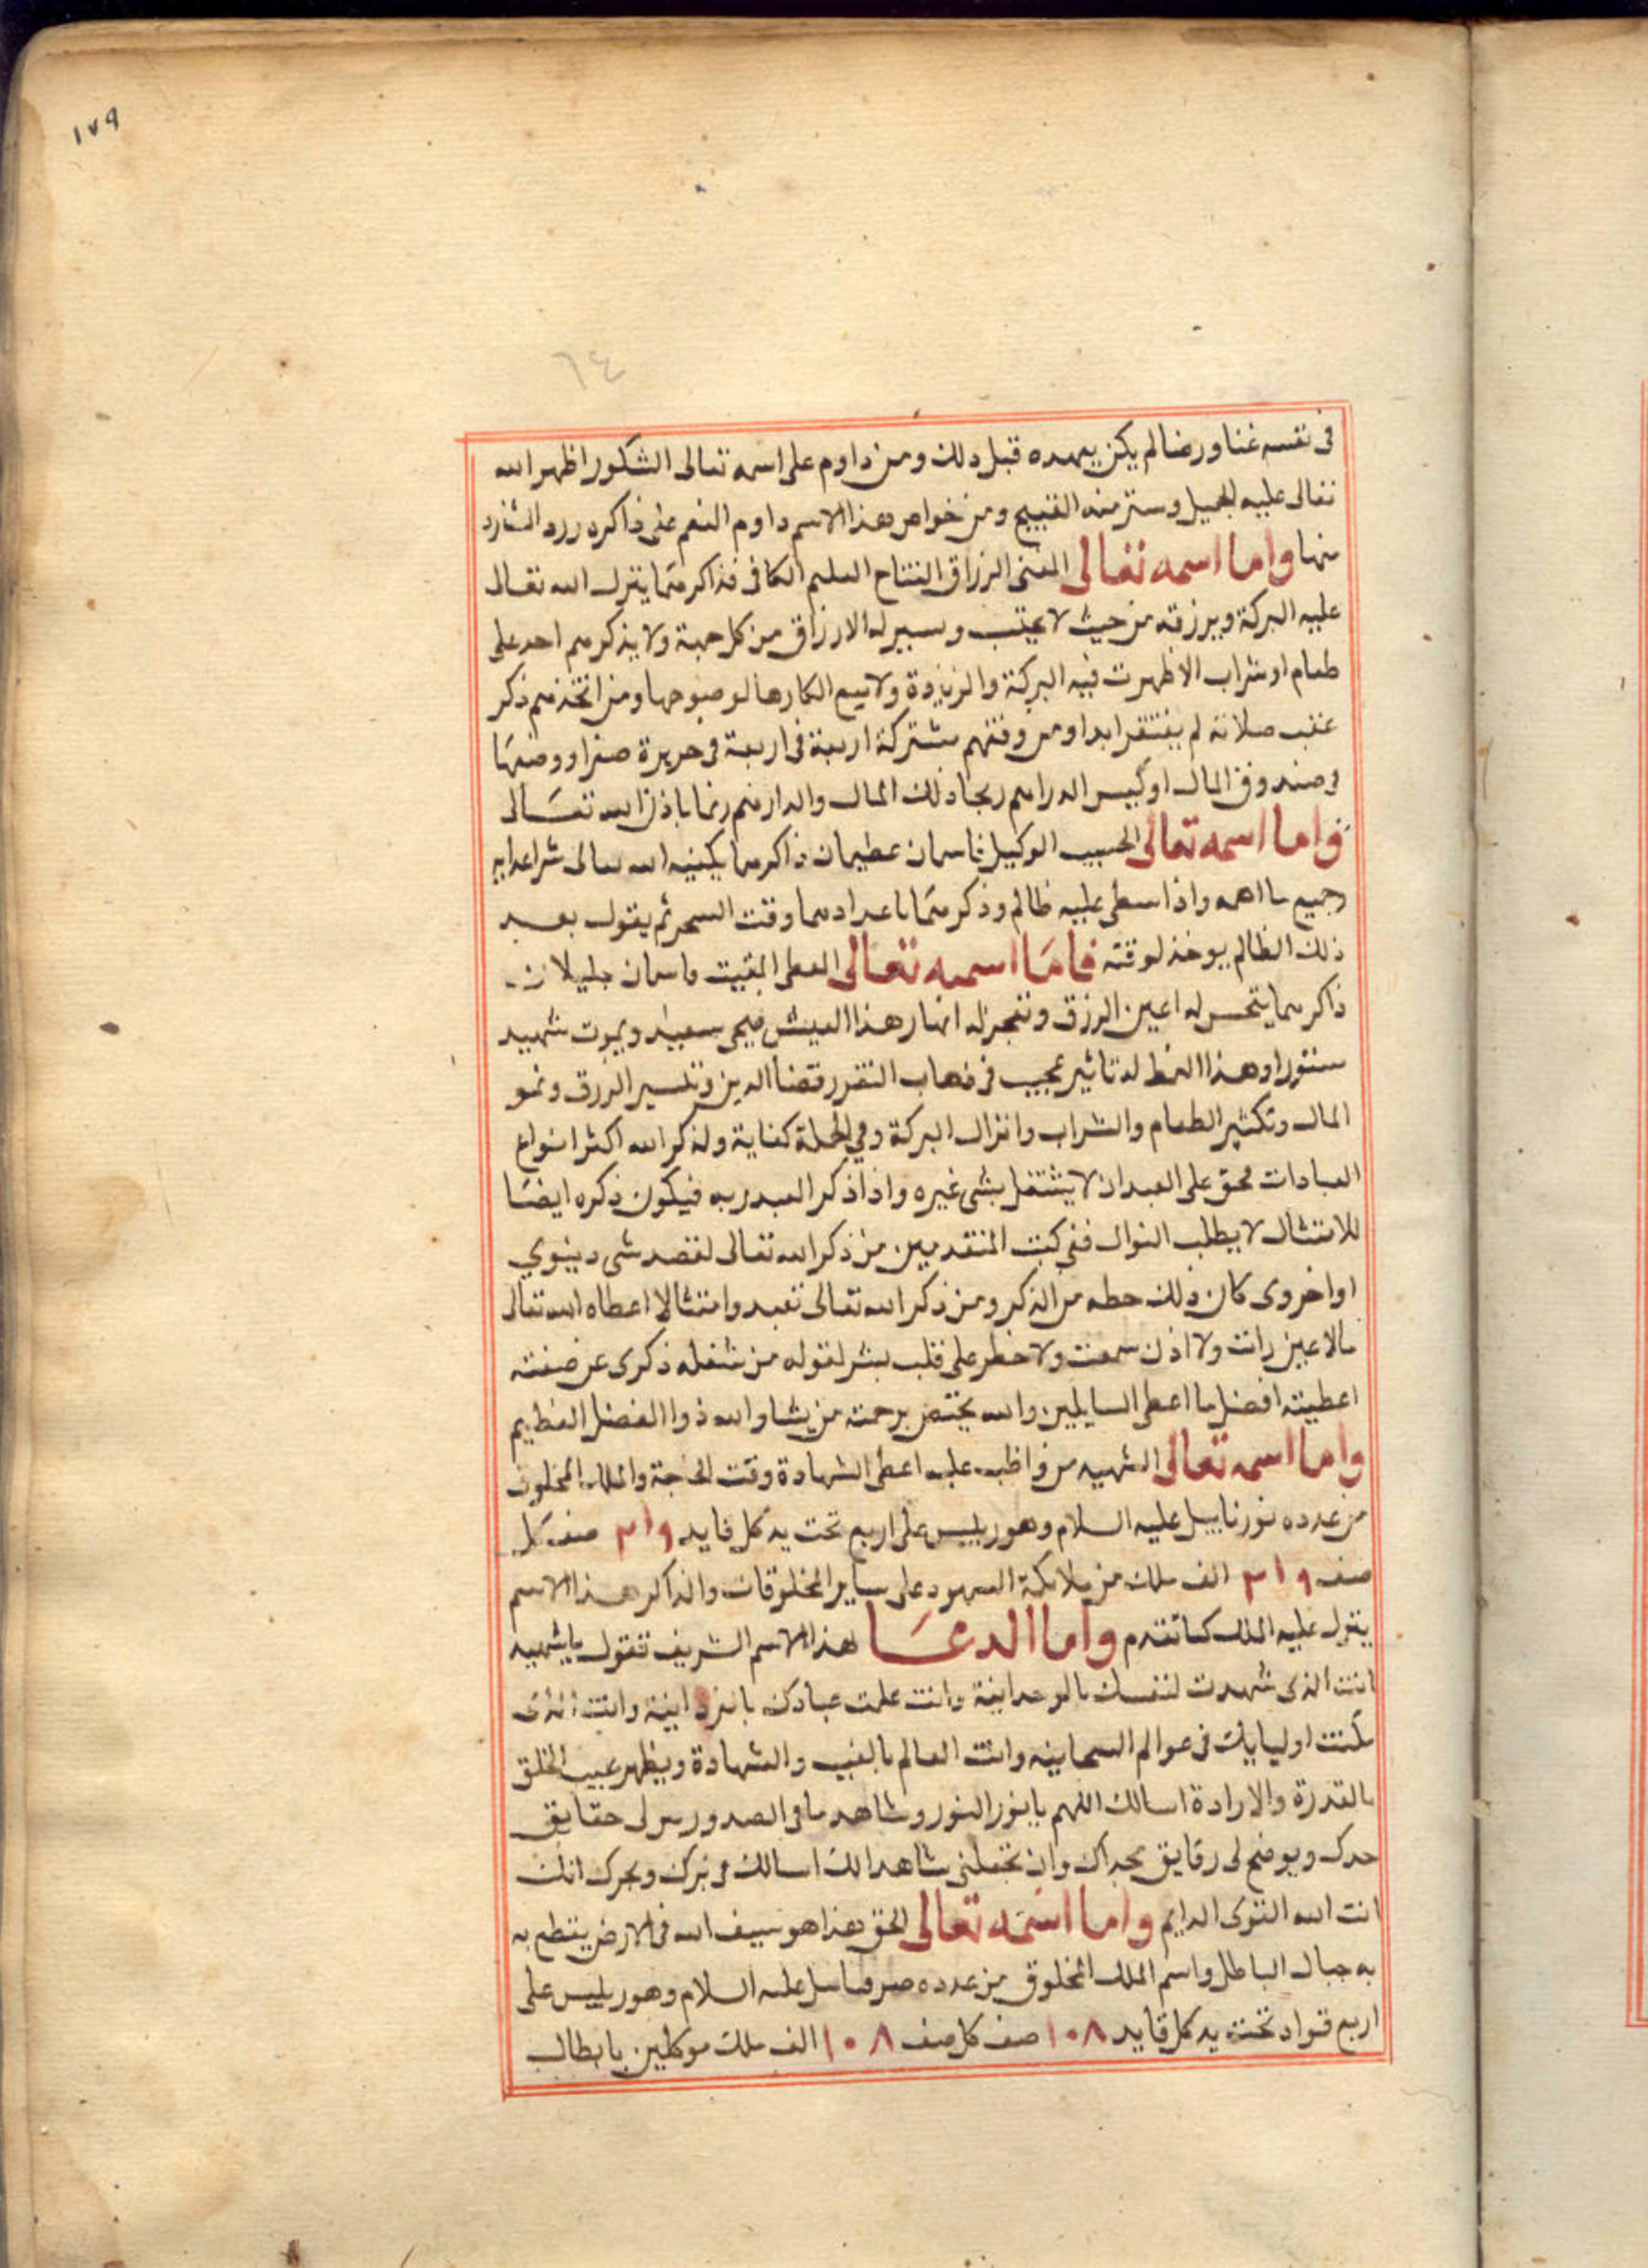 ١٧٩
٦٤
فى نفسه غنا ورضا لم يكن يعهده قبل ذلك ومن داوم على اسمه تعالى الشكور اظهر الله
تعالى عليه الجميل وستر منه القبيح ومن خواص هذا الاسم داوم النعم على ذاكره
منها واما اسمه تعالى المغنى الرزاق الفتاح العليم الكافى فذاكرهما ينزل الله تعالى
عليه البركة ويرزقه من حيث لا يحتسب ويسير له الارزاق من كل جهة ولا يذكرهم احد على
طعام او شراب الا ظهرت فيه البركة والزيادة ولا يسع انكارها لوضوحها ومن اتخذهم ذكر
عقب صلاته لم يفتقر ابدا ومن وفقهم مشتركة اربعة فى اربعة فى حريرة صفرا ووضعها
فى صندوق المال او كيس الدراهم ذلك المال والدارهم باذن الله تعالى
واما اسمه تعالى الحسيب الوكيل فاسمان عظيمان ذاكرهما يكفيه الله تعالى شر اعدايه
وجميع ما اهمه واذا سطى عليه ظالم وذكرهما باعدادهما وقت السحر ثم يقول بعد
ذلك الظالم يوخذ لوقته فاما اسمه تعالى المعطى المقيت فاسمان جليلان
ذاكرهما له اعين الرزق وتنفجر له انهار هذا العيش فيحى سعيد ويموت شهيد
مستورا وهذا النمط له تاثير عجيب فى ذهاب الفقر وقضا الدين وتيسير الرزق ونمو
المال وتكثير الطعام والشراب وانزال البركة وفى الجملة كفاية ولذكر الله اكثر انواع
العبادات فحق على العبد ان لا يشتغل بشى غيره واذا ذكر العبد ربه فيكون ذكره ايضا
للامتثال لا يطلب النوال ففى كتب المتقدمين من ذكر الله تعالى لقصد شى دينوي
او اخروى كان ذلك حظه من الذكر ومن ذكر الله تعالى تعبد وامتثالا اعطاه الله تعالى
مالا عين رات ولا اذن سمعت ولا خطر على قلب بشر لقوله من شغله ذكرى عن
اعطيته افضل ما اعطى السايلين والله يختص برحمته من يشا والله ذوا الفضل العظيم
واما اسمه تعالى الشهيد من واظب عليه اعطى الشهادة وقت والملك المخلوق
من عدده نورناييل عليه السلام وهو رييس على اربع تحت يد كل قايد ٣١٩ صف كل
صف ٣١٩ الف ملك من ملايكة العهود على ساير المخلوقات والذاكر هذا الاسم
ينزل عليه الملك كما تقدم واما الدعا لهذا الاسم الشريف تقول يا شهيد
انت الذى شهدت لنفسك بالوحدانية وانت علمت عبادك وانت الذى
مكنت اوليايك فى عوالم وانت العالم بالغيب والشهادة ويظهر عجيب الخلق
بالقدرة والارادة اسالك اللهم يا نور النور وشاهد ما فى الصدور لى حقايق
ويوضح لى رقايق وان تجعلنى شاهدا لك اسالك انك
انت الله القوى الدايم واما اسمه تعالى الحق فهذا هو سيف الله فى الارض يقطع به
به حبال الباطل واسم الملك المخلوق من عدده عليه السلام وهو رييس على
اربع قواد تحت يد كل قايد ١٠٨ صف كل صف ١٠٨ الف ملك موكلين بابطال